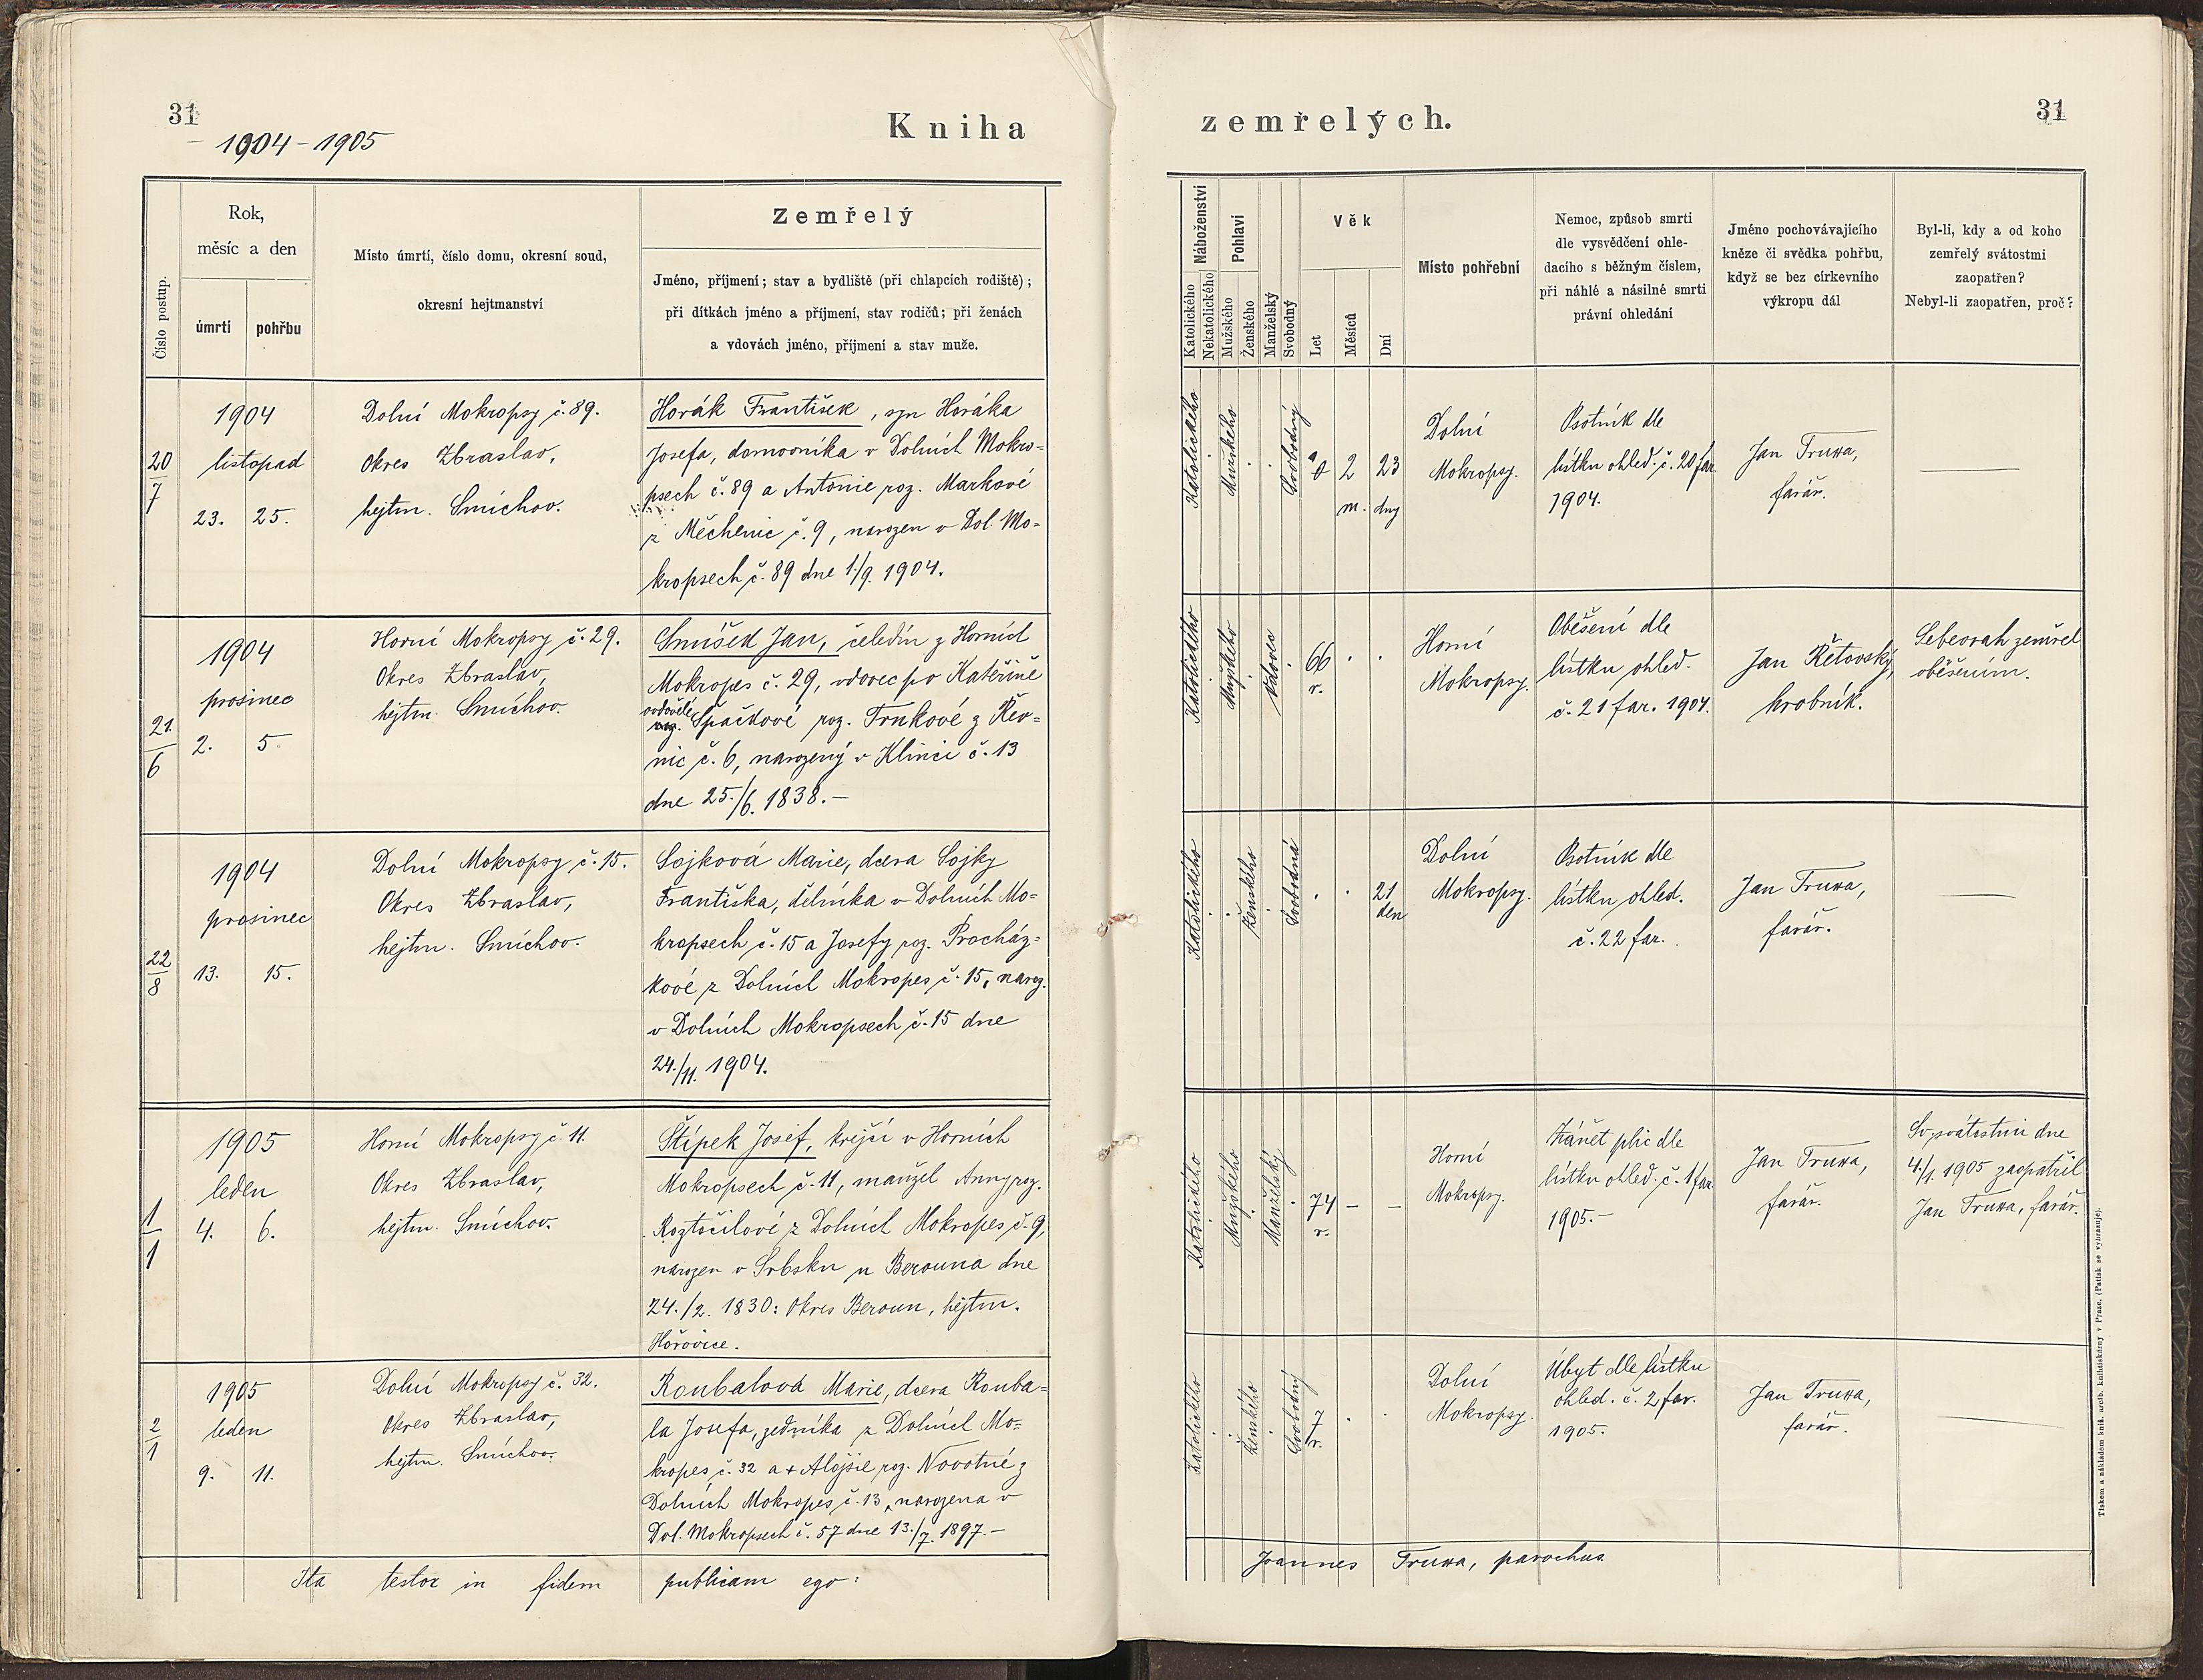 31
1904 – 1905
Kniha
zemřelých.
31
Číslo postup.
Rok,
měsíc a den
úmrtí
pohřbu
Místo úmrtí, číslo domu, okresní soud,
okresní hejtmanství
Zemřelý
Jméno, příjmení; stav a bydliště (při chlapcích rodiště);
při dítkách jméno a příjmení, stav rodičů; při ženách
a vdovách jméno, příjmení a stav muže.
Náboženství
Katolického
Nekatolického
Pohlaví
Mužského
Ženského
Manželský
Svobodný
Věk
Let
Měsíců
Dní
Místo pohřební
Nemoc, způsob smrti
dle vysvědčení ohle-
dacího s běžným číslem,
při náhlé a násilné smrti
právní ohledání
Jméno pochovávajícího
kněze či svědka pohřbu,
když se bez církevního
výkropu dál
Byl-li, kdy a od koho
zemřelý svátostmi
zaopatřen?
Nebyl-li zaopatřen, proč?
20
7
1904
listopad
23. 25.
Dolní Mokropsy č. 89.
Okres Zbraslav,
hejtm. Smíchov.
Horák František, syn Horáka
Josefa, domovníka v Dolních Mokro=
psech č. 89 a Antonie roz. Markové
z Měchenic č. 9, narozen v Dol. Mo=
kropsech č. 89 dne 1./9. 1904.
Katolického
Mužského
Svobodný
0 2 23
m. dny
Dolní
Mokropsy.
Psotník dle
lístku ohled. č. 20 far
1904.
Jan Truxa,
farář.
21.
6
1904
prosinec
2. 5
Horní Mokropsy č. 29.
Okres Zbraslav,
hejtm. Smíchov.
Smíšek Jan, čeledín z Horních
Mokropes č. 29, vdovec po Kateřině
ovdovělé
roz. Špačkové roz. Trnkové z Řev=
nic č. 6, narozený v Klínci č. 13
dne 25./6. 1838. –
Katolického
Mužského
Vdovec
66
r.
Horní
Mokropsy.
Oběšení dle
lístku ohled.
č. 21 far. 1904.
Jan Řetovský,
hrobník.
Sebevrah zemřel
oběšením.
22
8
1904
prosinec
13. 15.
Dolní Mokropsy č. 15.
Okres Zbraslav,
hejtm. Smíchov.
Sojková Marie, dcera Sojky
Františka, dělníka v Dolních Mo=
kropsech č. 15 a Josefy roz. Procház=
kové z Dolních Mokropes č. 15, naroz.
v Dolních Mokropsech č. 15 dne
24./11. 1904.
Katolického
Ženského
Svobodná
21
den
Dolní
Mokropsy.
Psotník dle
lístku ohled.
č. 22 far.
Jan Truxa,
farář.
1
1
1905
leden
4. 6.
Horní Mokropsy č. 11.
Okres Zbraslav,
hejtm. Smíchov.
Štípek Josef, krejčí v Horních
Mokropsech č. 11, manžel Anny roz.
Roztočilové z Dolních Mokropes č. 9,
narozen v Srbsku u Berouna dne
24./2. 1830: Okres Beroun, hejtm.
Hořovice.
Katolického
Mužského
Manželský
74 – –
r.
Horní
Mokropsy.
Zánět plic dle
lístku ohled. č. 1 far.
1905. –
Jan Truxa,
farář.
Sv. svátostmi dne
4./1. 1905 zaopatřil
Jan Truxa, farář.
2
1
1905
leden
9. 11.
Dolní Mokropsy č. 32.
Okres Zbraslav,
hejtm. Smíchov.
Roubalová Marie, dcera Rouba=
la Josefa, zedníka z Dolních Mo=
kropes č. 32 a + Aloisie roz. Novotné z
Dolních Mokropes č. 13, narozena v
Dol. Mokropsech č. 57 dne 13./7. 1897. –
Katolického
Ženského
Svobodný
7
r.
Dolní
Mokropsy.
Úbyt dle lístku
ohled. č. 2 far.
1905.
Jan Truxa,
farář.
Ita testor in fidem publicam ego:
Joannes Truxa, parochus
Tiskem a nákladem kníž. arcib. knihtiskárny v Praze. (Patisk se vyhrazuje).